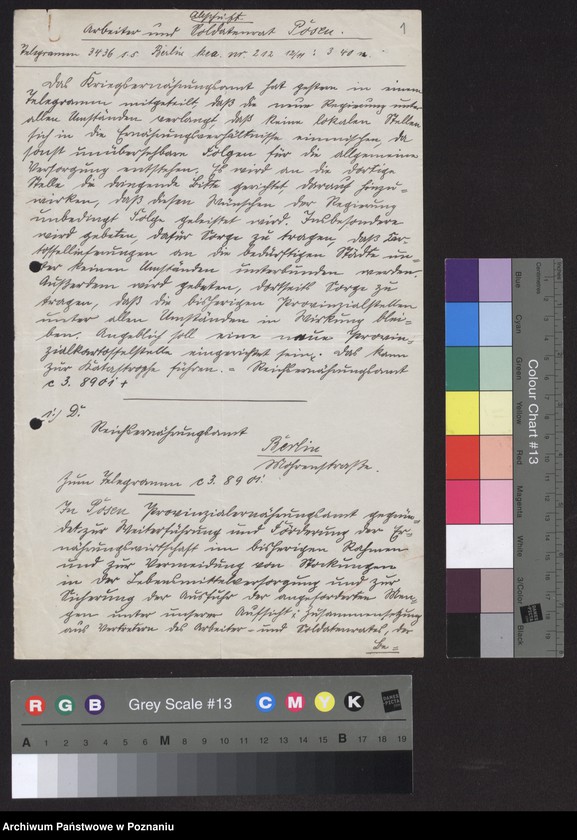 Abschrift
Arbeiter und Soldatenrat Posen.
1
Telegramm 3436 1.5 Berlin nr. 212 12/11 : 3 40 n.
Das Kriegsernährungsamt hat gestern in einem
Telegramm mitgeteilt daß die neue Regierung unter
allen Umständen verlangt daß keine lokalen Stellen
sich in die Ernährungsverhältnisse einmischen, da
sonst unübersehbare Folgen für die allgemeine
Versorgung entstehen. Es wird an die dortige
Stelle die dringende Bitte gerichtet darauf hinzu=
wirken, daß diesen Wünschen der Regierung
unbedingt Folge geleistet wird. Insbesondere
wird gebeten, dafür Sorge zu tragen, daß Kar=
toffellieferungen an die bedürftigen Städte un=
ter keinen Umständen unterbunden werden
Außerdem wird gebeten, dortseits Sorge zu
tragen, daß die bisherigen Provinzialstellen
unter allen Umständen in Wirkung blei=
ben. Angeblich soll eine neue Provin=
zialkartoffelstelle eingerichtet sein; das kann
zur Katastrophe führen. = Reichsernährungsamt
c 3. 8901 +
1.) D.
Reichsernährungsamt
Berlin
Mohrenstraße.
Zum Telegramm c 3. 8901.
In Posen Provinzialernährungsamt gegrün=
det zur Weiterführung und Förderung der Er=
nährungswirtschaft im bisherigen Rahmen
und zur Vermeidung von Stockungen
in der Lebensmittelversorgung und zur
Sicherung der Ausfuhr der angeforderten Men=
gen unter unserer Aufsicht; Zusammensetzung
aus Vertretern des Arbeiter- und Soldatenrates, der
Be=
Colour Chart #13
Blue
Cyan
Green
Yellow
Red
Magenta
White
3/Color
Black
Centimetres
Inches
R G B Grey Scale #13 C M Y K
A 1 2 3 4 5 6 M 8 9 10 11 12 13 14 15 B 17 18 19
Archiwum Państwowe w Poznaniu